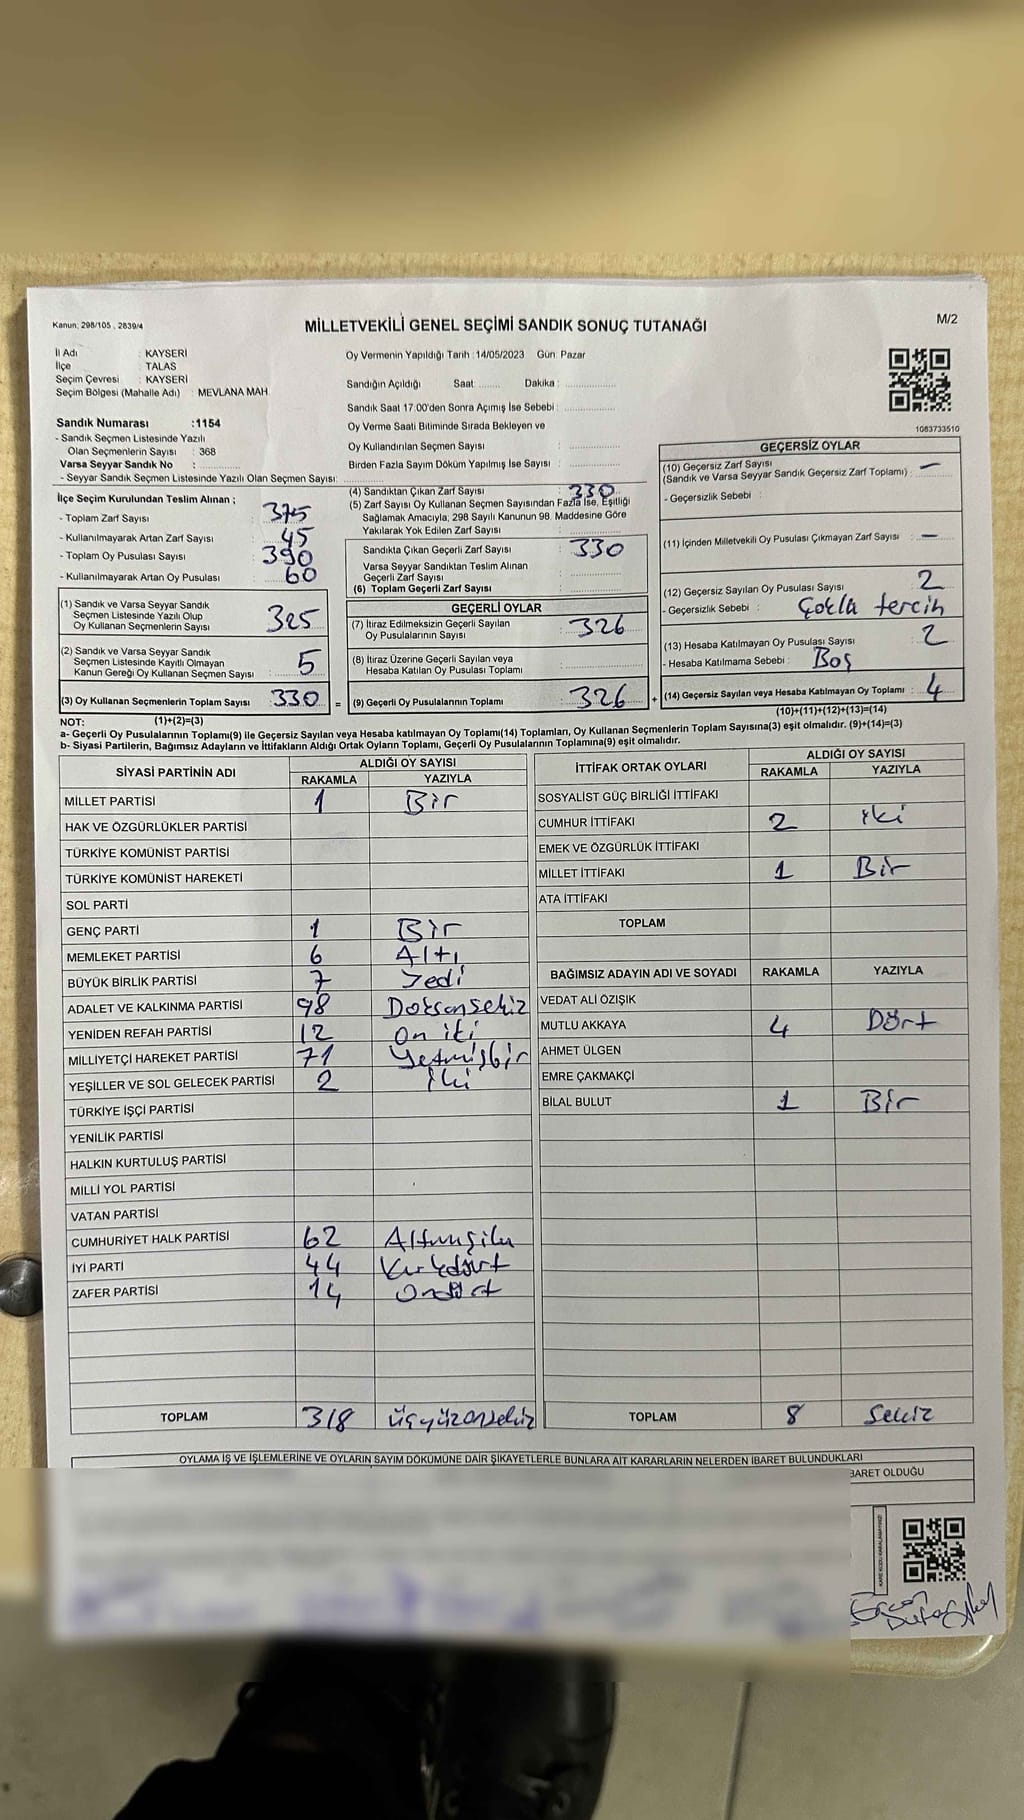 Kanun; 298/105 , 2839/4
MİLLETVEKİLİ GENEL SEÇİMİ SANDIK SONUÇ TUTANAĞI
M/2
İl Adı : KAYSERİ
İlçe : TALAS
Seçim Çevresi : KAYSERİ
Seçim Bölgesi (Mahalle Adı) : MEVLANA MAH
Sandık Numarası :1154
- Sandık Seçmen Listesinde Yazılı
Olan Seçmenlerin Sayısı : 368
Varsa Seyyar Sandık No :
- Seyyar Sandık Seçmen Listesinde Yazılı Olan Seçmen Sayısı:
Oy Vermenin Yapıldığı Tarih :14/05/2023 Gün: Pazar
Sandığın Açıldığı Saat: Dakika :
Sandık Saat 17:00'den Sonra Açımış İse Sebebi :
Oy Verme Saati Bitiminde Sırada Bekleyen ve
Oy Kullandırılan Seçmen Sayısı :
Birden Fazla Sayım Döküm Yapılmış İse Sayısı :
1083733510
İlçe Seçim Kurulundan Teslim Alınan ;
- Toplam Zarf Sayısı : 375
- Kullanılmayarak Artan Zarf Sayısı : 45
- Toplam Oy Pusulası Sayısı : 390
- Kullanılmayarak Artan Oy Pusulası : 60
(1) Sandık ve Varsa Seyyar Sandık
Seçmen Listesinde Yazılı Olup
Oy Kullanan Seçmenlerin Sayısı : 325
(2) Sandık ve Varsa Seyyar Sandık
Seçmen Listesinde Kayıtlı Olmayan
Kanun Gereği Oy Kullanan Seçmen Sayısı : 5
(3) Oy Kullanan Seçmenlerin Toplam Sayısı : 330 =
(1)+(2)=(3)
(4) Sandıktan Çıkan Zarf Sayısı : 330
(5) Zarf Sayısı Oy Kullanan Seçmen Sayısından Fazla İse, Eşitliği
Sağlamak Amacıyla, 298 Sayılı Kanunun 98. Maddesine Göre
Yakılarak Yok Edilen Zarf Sayısı :
Sandıkta Çıkan Geçerli Zarf Sayısı : 330
Varsa Seyyar Sandıktan Teslim Alınan
Geçerli Zarf Sayısı :
(6) Toplam Geçerli Zarf Sayısı :
GEÇERLİ OYLAR
(7) İtiraz Edilmeksizin Geçerli Sayılan
Oy Pusulalarının Sayısı : 326
(8) İtiraz Üzerine Geçerli Sayılan veya
Hesaba Katılan Oy Pusulası Toplamı :
(9) Geçerli Oy Pusulalarının Toplamı : 326 +
GEÇERSİZ OYLAR
(10) Geçersiz Zarf Sayısı
(Sandık ve Varsa Seyyar Sandık Geçersiz Zarf Toplamı) : —
- Geçersizlik Sebebi :
(11) İçinden Milletvekili Oy Pusulası Çıkmayan Zarf Sayısı : —
(12) Geçersiz Sayılan Oy Pusulası Sayısı : 2
- Geçersizlik Sebebi : çokla tercih
(13) Hesaba Katılmayan Oy Pusulası Sayısı : 2
- Hesaba Katılmama Sebebi : Boş
(14) Geçersiz Sayılan veya Hesaba Katılmayan Oy Toplamı : 4
(10)+(11)+(12)+(13)=(14)
NOT:
a- Geçerli Oy Pusulalarının Toplamı(9) ile Geçersiz Sayılan veya Hesaba katılmayan Oy Toplamı(14) Toplamları, Oy Kullanan Seçmenlerin Toplam Sayısına(3) eşit olmalıdır. (9)+(14)=(3)
b- Siyasi Partilerin, Bağımsız Adayların ve İttifakların Aldığı Ortak Oyların Toplamı, Geçerli Oy Pusulalarının Toplamına(9) eşit olmalıdır.
SİYASİ PARTİNİN ADI ALDIĞI OY SAYISI
RAKAMLA YAZIYLA
MİLLET PARTİSİ 1 Bir
HAK VE ÖZGÜRLÜKLER PARTİSİ
TÜRKİYE KOMÜNİST PARTİSİ
TÜRKİYE KOMÜNİST HAREKETİ
SOL PARTİ
GENÇ PARTİ 1 Bir
MEMLEKET PARTİSİ 6 Altı
BÜYÜK BİRLİK PARTİSİ 7 Yedi
ADALET VE KALKINMA PARTİSİ 98 Doksansekiz
YENİDEN REFAH PARTİSİ 12 On iki
MİLLİYETÇİ HAREKET PARTİSİ 71 Yetmişbir
YEŞİLLER VE SOL GELECEK PARTİSİ 2 iki
TÜRKİYE İŞÇİ PARTİSİ
YENİLİK PARTİSİ
HALKIN KURTULUŞ PARTİSİ
MİLLİ YOL PARTİSİ
VATAN PARTİSİ
CUMHURİYET HALK PARTİSİ 62 Altmışiki
İYİ PARTİ 44 Kırkdört
ZAFER PARTİSİ 14 Ondört
TOPLAM 318 üçyüzonsekiz
İTTİFAK ORTAK OYLARI ALDIĞI OY SAYISI
RAKAMLA YAZIYLA
SOSYALİST GÜÇ BİRLİĞİ İTTİFAKI
CUMHUR İTTİFAKI 2 iki
EMEK VE ÖZGÜRLÜK İTTİFAKI
MİLLET İTTİFAKI 1 Bir
ATA İTTİFAKI
TOPLAM
BAĞIMSIZ ADAYIN ADI VE SOYADI RAKAMLA YAZIYLA
VEDAT ALİ ÖZIŞIK
MUTLU AKKAYA 4 Dört
AHMET ÜLGEN
EMRE ÇAKMAKÇİ
BİLAL BULUT 1 Bir
TOPLAM 8 Sekiz
OYLAMA İŞ VE İŞLEMLERİNE VE OYLARIN SAYIM DÖKÜMÜNE DAİR ŞİKAYETLERLE BUNLARA AİT KARARLARIN NELERDEN İBARET BULUNDUKLARI
BARET OLDUĞU
KARE KODU KARALAMAYINIZ!